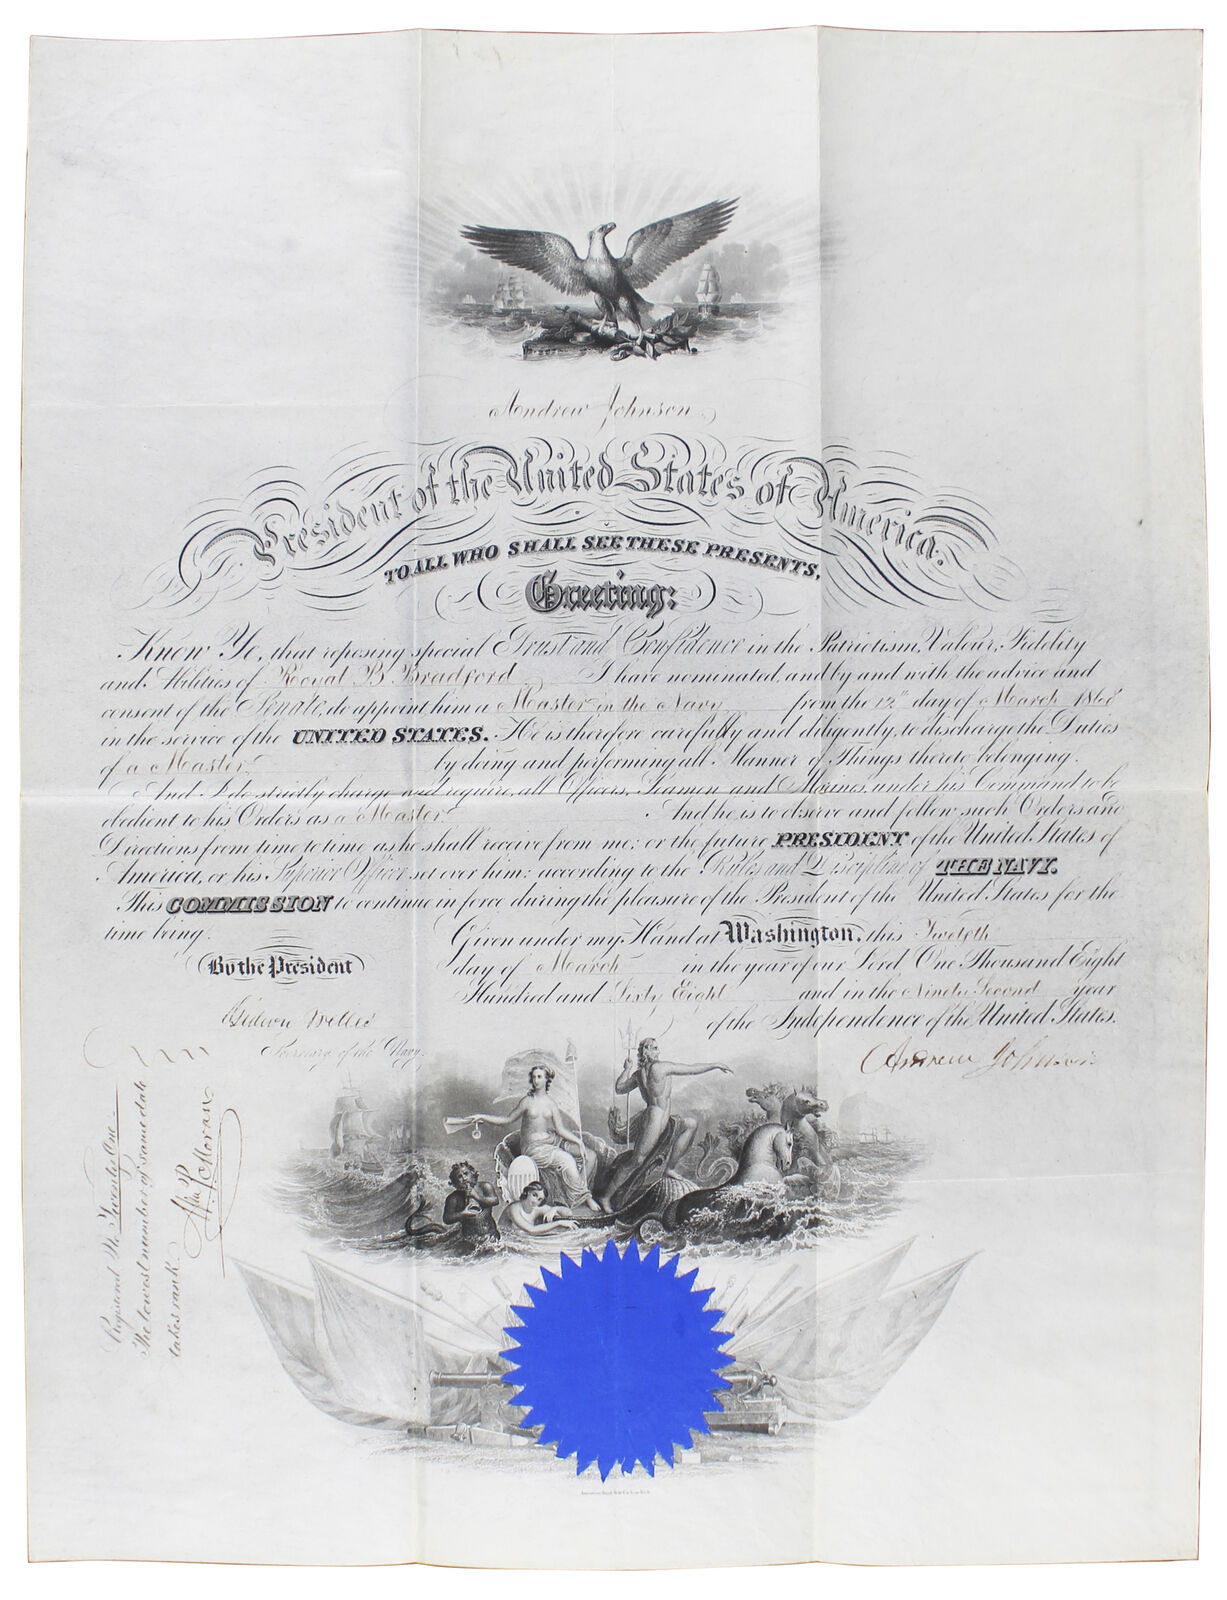 Andrew Johnson
President of the United States of America.
TO ALL WHO SHALL SEE THESE PRESENTS,
Greeting:
Know Ye, that reposing special Trust and Confidence in the Patriotism, Valour, Fidelity
and Abilities of Royal B. Bradford I have nominated, and by and with the advice and
consent of the Senate, do appoint him a Master in the Navy from the 12th day of March 1868
in the service of the UNITED STATES. He is therefore carefully and diligently, to discharge the Duties
of a Master, by doing and performing all Manner of Things thereto belonging.
And I do strictly charge and require, all Officers, Seamen and Marines, under his Command to be
obedient to his Orders as a Master. And he is to observe and follow such Orders and
Directions from time to time as he shall receive from me, or the future PRESIDENT of the United States of
America, or his Superior Officer set over him; according to the Rules and Discipline of THE NAVY.
This COMMISSION to continue in force during the pleasure of the President of the United States for the
time being.
Given under my Hand at Washington, this Twelfth
day of March in the year of our Lord One Thousand Eight
Hundred and Sixty Eight and in the Ninety Second year
of the Independence of the United States.
By the President
Andrew Johnson
Gideon Welles
Secretary of the Navy.
Registered No Twenty One
The lowest number of same date
takes rank.
Moran
American Bank Note Co. New York